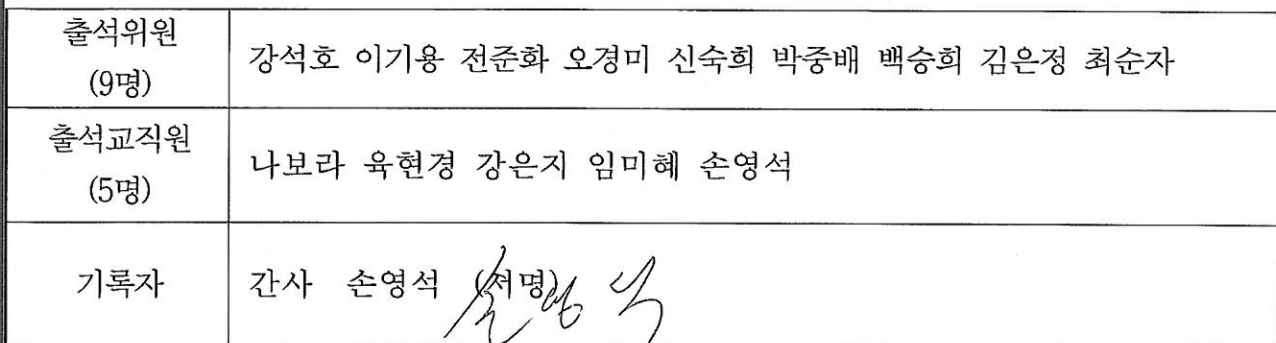 출석위원
(9명)
강석호 이기용 전준화 오경미 신숙희 박중배 백승희 김은정 최순자
출석교직원
(5명)
나보라 육현경 강은지 임미혜 손영석
기록자
간사 손영석 (서명)
손영석